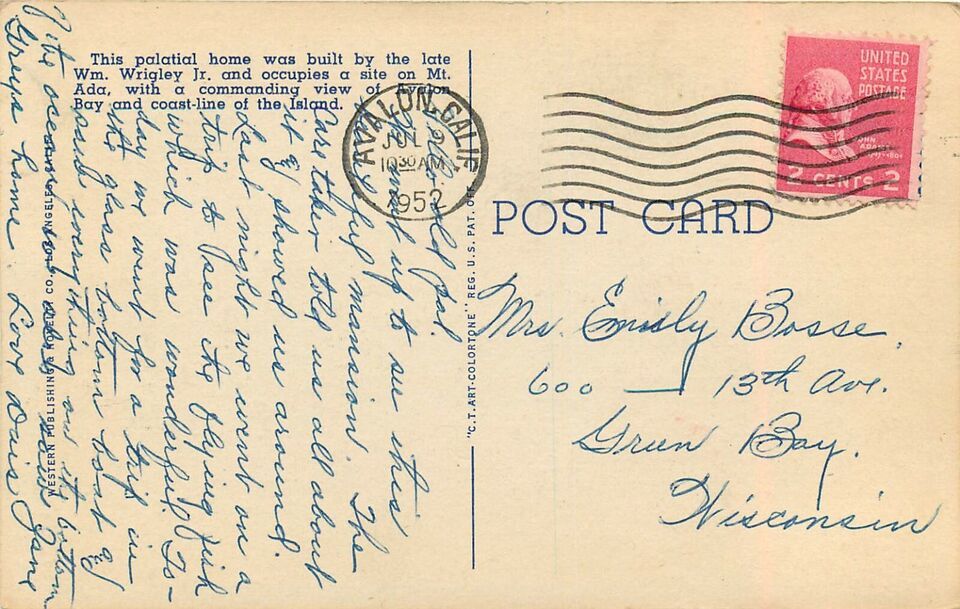 This palatial home was built by the late
Wm. Wrigley Jr. and occupies a site on Mt.
Ada, with a commanding view of Avalon
Bay and coast-line of the Island.
AVALON, CALIF.
JUL 2
10 30 AM
1952
UNITED
STATES
POSTAGE
JOHN
ADAMS
2 CENTS 2
POST CARD
Hello old pal.
Went up to see this
mansion. The
Care taker told us all about
it & showed us around.
Last night we went on a
trip to see the flying fish
which was wonderful. To-
day we went for a trip in
the glass bottom boat &
could see everything on the bottom
of the ocean
Greys home. Love Jane
WESTERN PUBLISHING & NOVELTY CO., LOS ANGELES
"C.T. ART-COLORTONE" REG. U.S. PAT. OFF.
Mrs. Emily Bosse.
600 — 13th Ave.
Green Bay.
Wisconsin